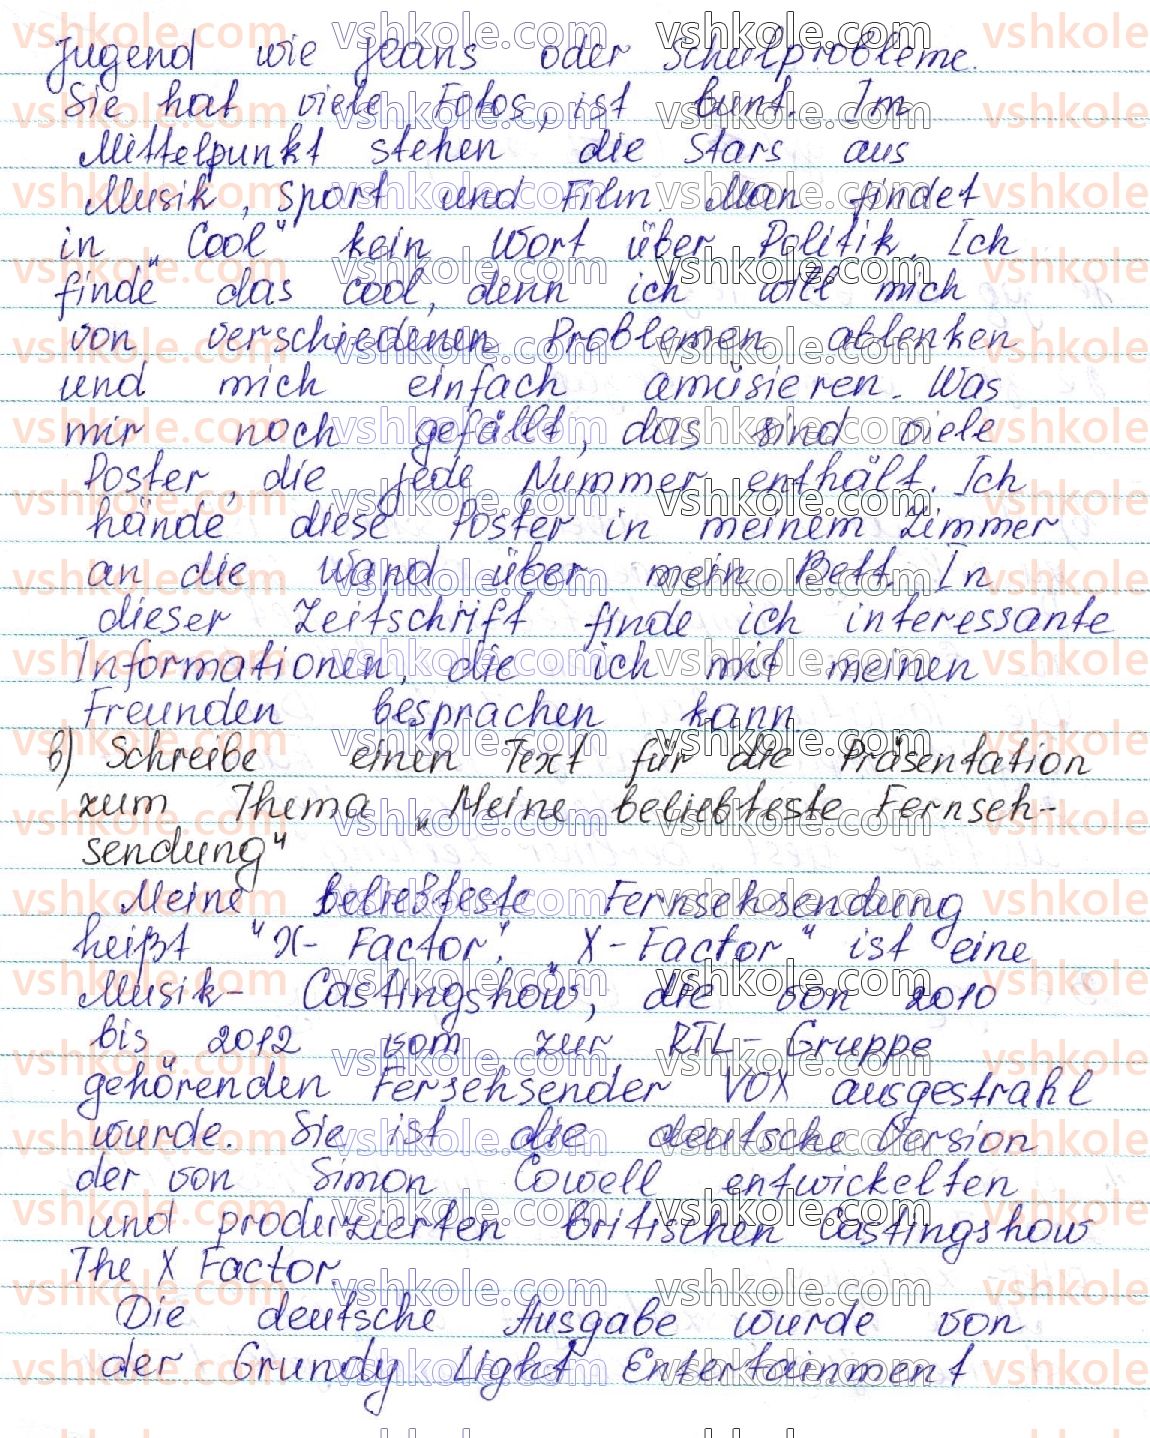 Jugend wie Jeans oder Schulprobleme.
Sie hat viele Fotos, ist bunt. Im
Mittelpunkt stehen die Stars aus
Musik, Sport und Film. Man findet
in „Cool" kein Wort über Politik. Ich
finde das cool, denn ich will mich
von verschiedenen Problemen ablenken
und mich einfach amüsieren. Was
mir noch gefällt, das sind viele
Poster, die jede Nummer enthält. Ich
hände diese Poster in meinem Zimmer
an die Wand über mein Bett. In
dieser Zeitschrift finde ich interessante
Informationen, die ich mit meinen
Freunden besprachen kann.
b) Schreibe einen Text für die Präsentation
zum Thema „Meine beliebteste Fernseh-
sendung"
Meine beliebteste Fernsehsendung
heißt "X-Factor". „X-Factor" ist eine
Musik-Castingshow, die von 2010
bis 2012 vom zur RTL-Gruppe
gehörenden Fersehsender VOX ausgestrahl
wurde. Sie ist die deutsche Version
der von Simon Cowell entwickelten
und produzierten britischen Castingshow
The X Factor.
Die deutsche Ausgabe wurde von
der Grundy Light Entertainment